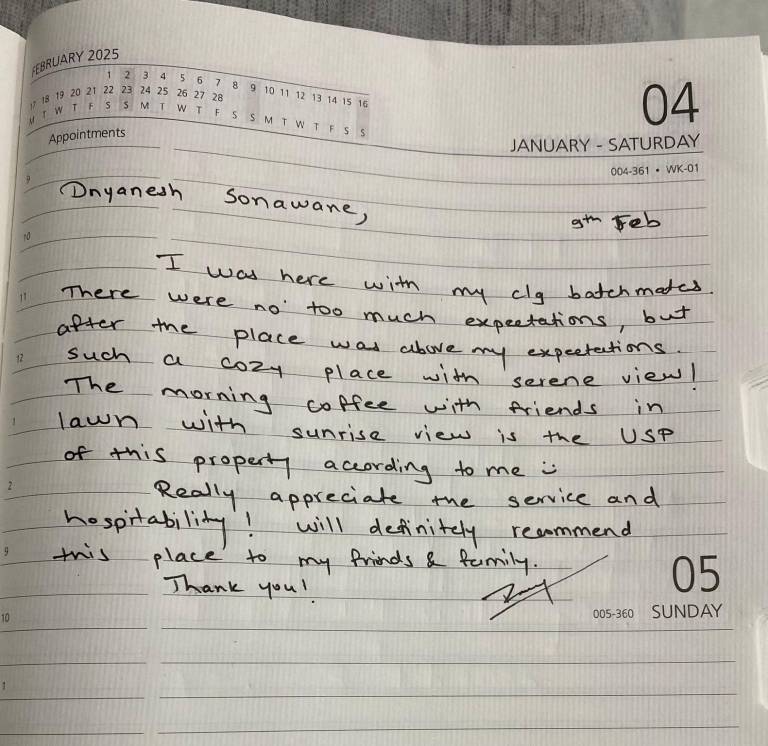 FEBRUARY 2025
1 2 3 4 5 6 7 8 9 10 11 12 13 14 15 16
17 18 19 20 21 22 23 24 25 26 27 28
M T W T F S S M T W T F S S M T W T F S S
04
JANUARY - SATURDAY
004-361 • WK-01
Appointments
9
Dnyanesh Sonawane,
9th Feb
10
I was here with my clg batchmates.
11 There were no too much expectations, but
after the place was above my expectations.
12 such a cozy place with serene view!
The morning coffee with friends in
1 lawn with sunrise view is the USP
of this property according to me :)
2 Really appreciate the service and
hospitability! will definitely recommend
9 this place to my frinds & family.
Thank you!
05
10
005-360 SUNDAY
1